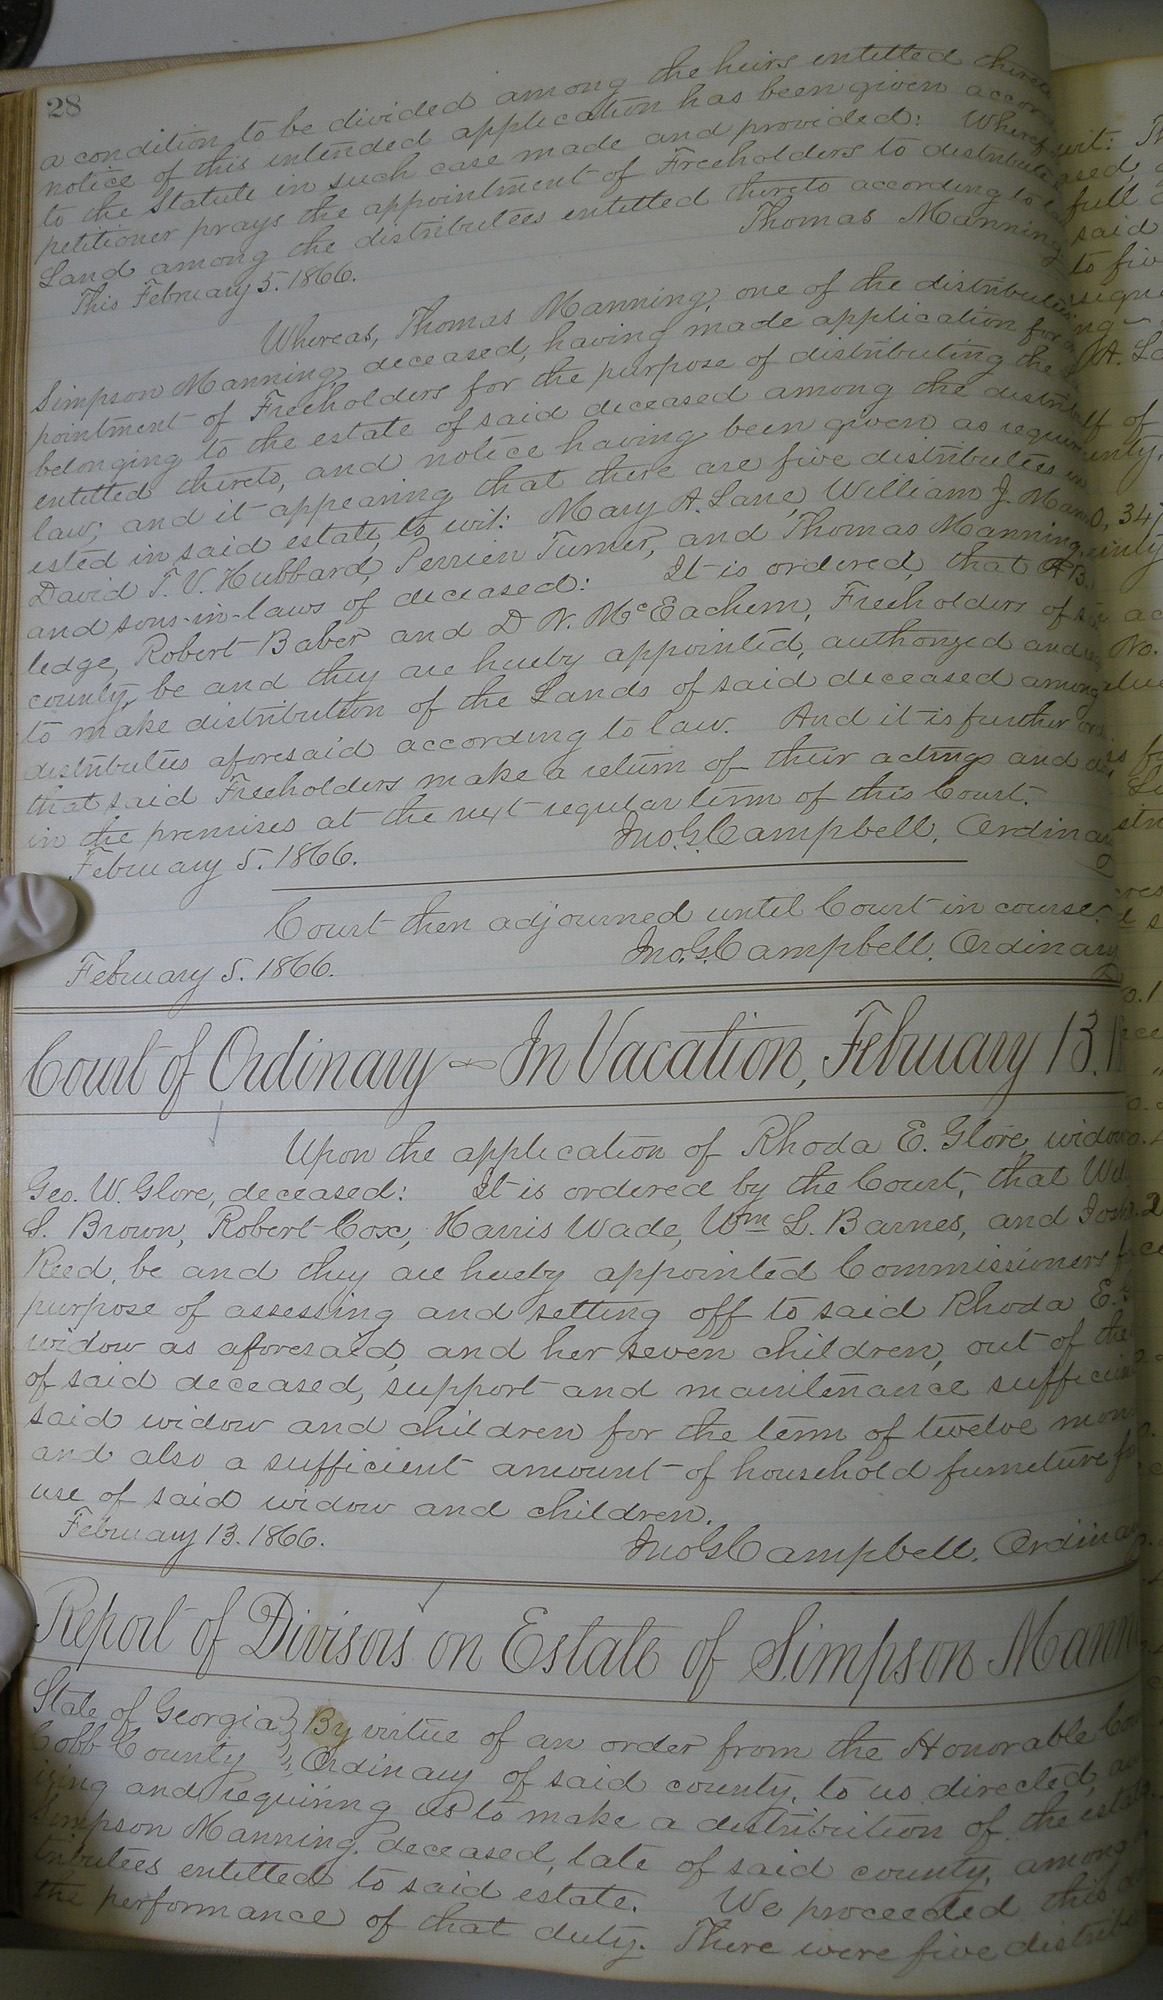 28
a condition to be divided among the heirs entitled
notice of this intended application has been given
to the Statute in such case made and provided:
petitioner prays the appointment of Freeholders to distribute
Land among the distributees entitled thereto according to
Thomas Manning
This February 5. 1866.
Whereas, Thomas Manning, one of the
Simpson Manning, deceased, having made application for
pointment of Freeholders for the purpose of distributing the
belonging to the estate of said deceased among the
entitled thereto, and notice having been given as
law; and it appearing that there are five distributees
ested in said estate, to wit: Mary A. Lane, William J.
David T. V. Hubbard, Perrien Turner, and Thomas Manning,
and sons-in-laws of deceased: It is ordered, that
ledge, Robert Baber and D N. McEachern, Freeholders of
county, be and they are hereby appointed, authorized and
to make distribution of the Lands of said deceased among
distributees aforesaid according to law. And it is further
that said Freeholders make a return of their actings and
in the premises at the next regular term of this Court.
February 5. 1866. Jno. G. Campbell, Ordinary
Court then adjourned until Court in course.
February 5. 1866. Jno. G. Campbell, Ordinary
Court of Ordinary - In Vacation, February 13.
Upon the application of Rhoda E. Glore, widow
Geo. W. Glore, deceased: It is ordered by the Court, that
S. Brown, Robert Cox, Harris Wade, Wm L. Barnes, and
Reed, be and they are hereby appointed Commissioners
purpose of assessing and setting off to said Rhoda E.
widow as aforesaid, and her seven children, out of the
of said deceased, support and maintenance
said widow and children for the term of twelve
and also a sufficient amount of household furniture
use of said widow and children.
February 13. 1866. Jno G Campbell, Ordinary
Report of Divisors on Estate of Simpson
State of Georgia } By virtue of an order from the Honorable
Cobb County } Ordinary of said county, to us directed,
izing and requiring us to make a distribution of the
Simpson Manning, deceased, late of said county, among
tributees entitled to said estate. We proceeded this
the performance of that duty. There were five